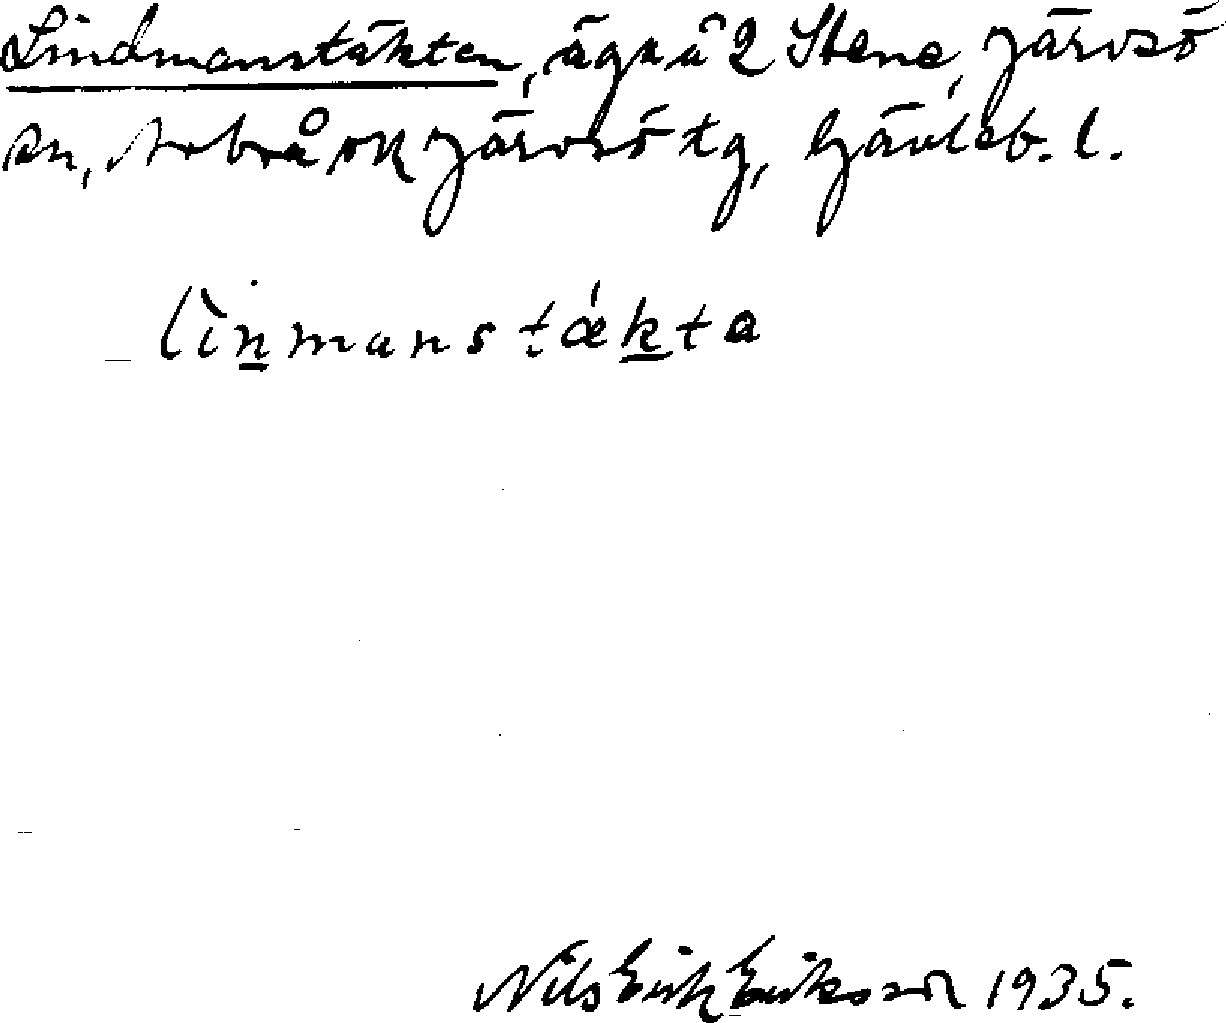 Lindmanstäkten, ägr å 2 Stene, Järvsö
sn, Arbrå ok Järvsö tg, Gävleb. l.
lìnmanstǽkta
Nils Erik Eriksson 1935.